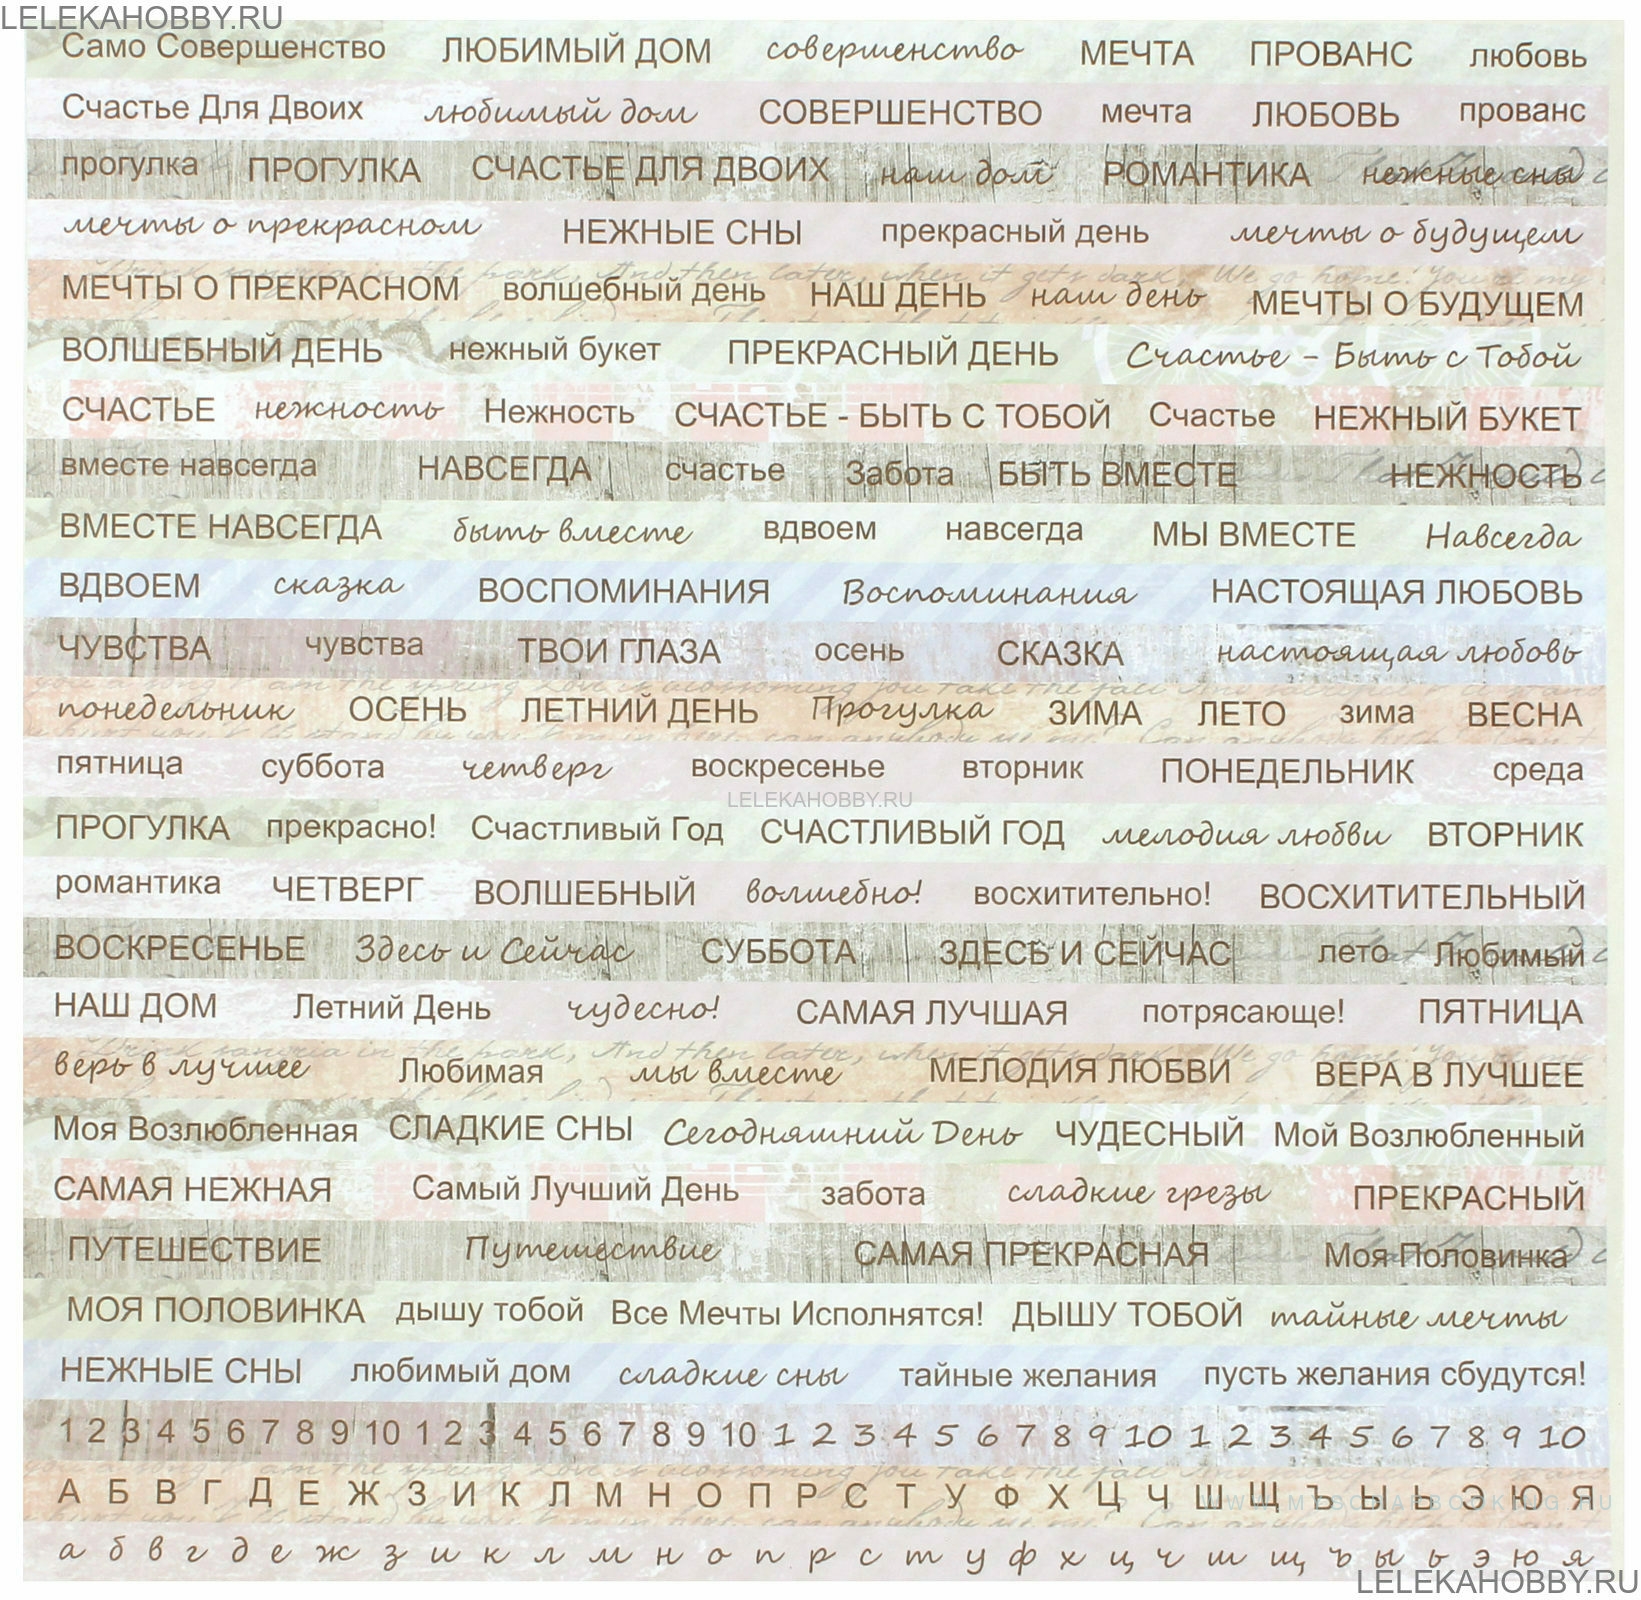 LELEKAHOBBY.RU
Само Совершенство ЛЮБИМЫЙ ДОМ совершенство МЕЧТА ПРОВАНС любовь
Счастье Для Двоих любимый дом СОВЕРШЕНСТВО мечта ЛЮБОВЬ прованс
прогулка ПРОГУЛКА СЧАСТЬЕ ДЛЯ ДВОИХ наш дом РОМАНТИКА нежные сны
мечты о прекрасном НЕЖНЫЕ СНЫ прекрасный день мечты о будущем
МЕЧТЫ О ПРЕКРАСНОМ волшебный день НАШ ДЕНЬ наш день МЕЧТЫ О БУДУЩЕМ
ВОЛШЕБНЫЙ ДЕНЬ нежный букет ПРЕКРАСНЫЙ ДЕНЬ Счастье - Быть с Тобой
СЧАСТЬЕ нежность Нежность СЧАСТЬЕ - БЫТЬ С ТОБОЙ Счастье НЕЖНЫЙ БУКЕТ
вместе навсегда НАВСЕГДА счастье Забота БЫТЬ ВМЕСТЕ НЕЖНОСТЬ
ВМЕСТЕ НАВСЕГДА быть вместе вдвоем навсегда МЫ ВМЕСТЕ Навсегда
ВДВОЕМ сказка ВОСПОМИНАНИЯ Воспоминания НАСТОЯЩАЯ ЛЮБОВЬ
ЧУВСТВА чувства ТВОИ ГЛАЗА осень СКАЗКА настоящая любовь
понедельник ОСЕНЬ ЛЕТНИЙ ДЕНЬ Прогулка ЗИМА ЛЕТО зима ВЕСНА
пятница суббота четверг воскресенье вторник ПОНЕДЕЛЬНИК среда
LELEKAHOBBY.RU
ПРОГУЛКА прекрасно! Счастливый Год СЧАСТЛИВЫЙ ГОД мелодия любви ВТОРНИК
романтика ЧЕТВЕРГ ВОЛШЕБНЫЙ волшебно! восхитительно! ВОСХИТИТЕЛЬНЫЙ
ВОСКРЕСЕНЬЕ Здесь и Сейчас СУББОТА ЗДЕСЬ И СЕЙЧАС лето Любимый
НАШ ДОМ Летний День чудесно! САМАЯ ЛУЧШАЯ потрясающе! ПЯТНИЦА
верь в лучшее Любимая мы вместе МЕЛОДИЯ ЛЮБВИ ВЕРА В ЛУЧШЕЕ
Моя Возлюбленная СЛАДКИЕ СНЫ Сегодняшний День ЧУДЕСНЫЙ Мой Возлюбленный
САМАЯ НЕЖНАЯ Самый Лучший День забота сладкие грезы ПРЕКРАСНЫЙ
ПУТЕШЕСТВИЕ Путешествие САМАЯ ПРЕКРАСНАЯ Моя Половинка
МОЯ ПОЛОВИНКА дышу тобой Все Мечты Исполнятся! ДЫШУ ТОБОЙ тайные мечты
НЕЖНЫЕ СНЫ любимый дом сладкие сны тайные желания пусть желания сбудутся!
1 2 3 4 5 6 7 8 9 10 1 2 3 4 5 6 7 8 9 10 1 2 3 4 5 6 7 8 9 10 1 2 3 4 5 6 7 8 9 10
А Б В Г Д Е Ж З И К Л М Н О П Р С Т У Ф Х Ц Ч Ш Щ Ъ Ы Ь Э Ю Я
а б в г д е ж з и к л м н о п р с т у ф х ц ч ш щ ъ ы ь э ю я
LELEKAHOBBY.RU